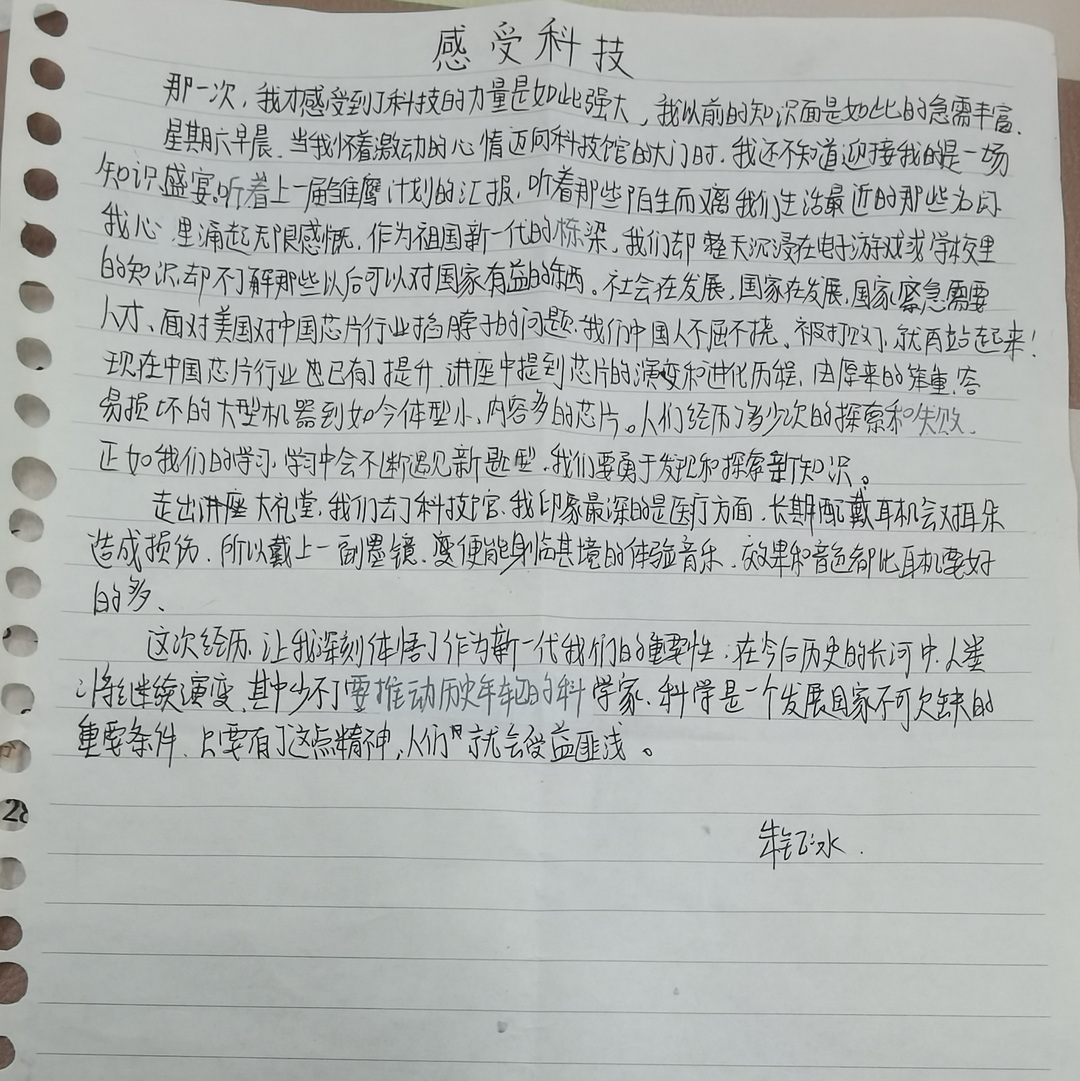 感受科技
那一次，我才感受到了科技的力量是如此强大，我以前的知识面是如此的急需丰富．
星期六早晨．当我怀着激动的心情迈向科技馆的大门时．我还不知道迎接我的是一场
知识盛宴。听着上一届雏鹰计划的汇报，听着那些陌生而离我们生活最近的那些名词
我心里涌起无限感慨．作为祖国新一代的栋梁．我们却整天沉浸在电子游戏或学校里
的知识，却不了解那些以后可以对国家有益的东西。社会在发展，国家在发展，国家紧急需要
人才、面对美国对中国芯片行业掐脖子的问题．我们中国人不屈不挠，被打败了，就再站起来！
现在中国芯片行业也已有了提升．讲座中提到芯片的演变和进化历程，由原来的笨重，容
易损坏的大型机器到如今体型小、内容多的芯片。人们经历了多少次的探索和失败．
正如我们的学习．学习中会不断遇见新题型．我们要勇于发现和探索新知识。
走出讲座大礼堂，我们去了科技馆．我印象最深的是医疗方面．长期配戴耳机会对耳朵
造成损伤．所以戴上一副墨镜．变便能身临其境的体验音乐．效果和音色都比耳机要好
的多、
这次经历．让我深刻体悟了作为新一代我们的重要性．在今后历史的长河中．人类
将继续演变．其中少不了要推动历史年轮的科学家．科学是一个发展国家不可欠缺的
重要条件．只要有了这点精神，人们才就会受益匪浅。
28
朱钰水．